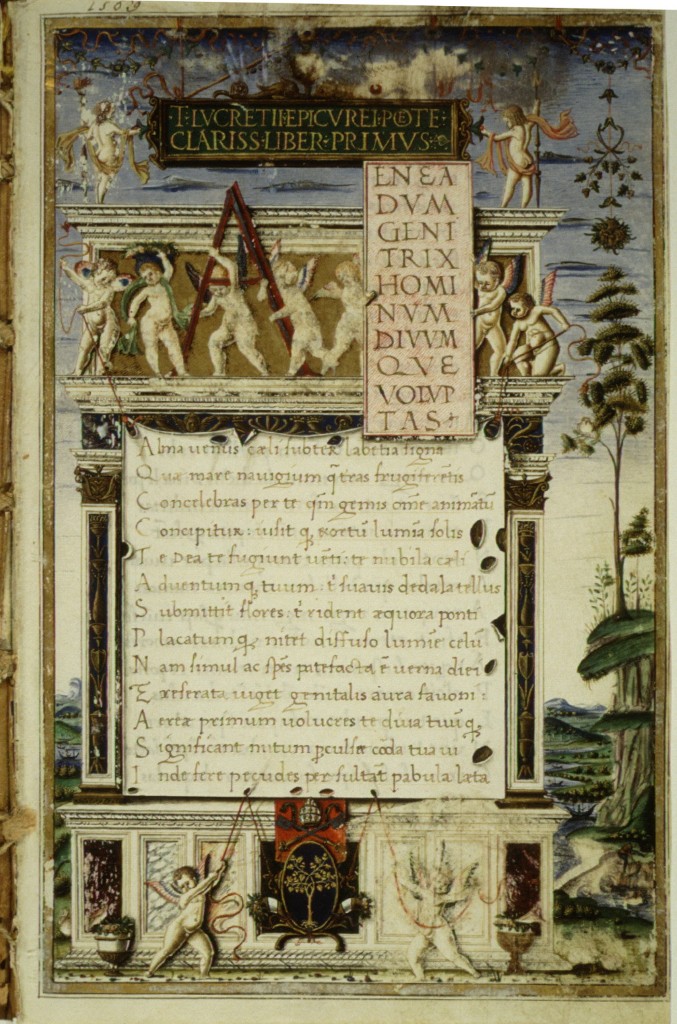 1569
T·LVCRETII·EPICVREI·POETE·
CLARISS·LIBER·PRIMVS·
A
ENEA
DVM
GENI
TRIX
HOMI
NVM
DIVVM
QVE
VOLVP
TAS
Alma uenus cæli subter labentia signa
Quæ mare nauigium q̃ tras frugiferẽtis
Concelebras per te qm̃ genus om̃e animãtũ
Concipitur: iusit q; exortũ lumĩa solis
Te Dea te fugiunt uẽti: te nubila cæli
Aduentum q; tuum: t̃ suauis dedala tellus
Submittit flores: t̃ rident æquora ponti
Placatum q; nitet diffuso lumĩe celũ
Nam simul ac spẽs patefacta ẽ uerna diei
Exreserata uiget genitalis aura fauoni:
Aereæ primum uolucres te diua tuũ q;
Significant initum p̲culsæ corda tua ui
Inde fere pecudes per sultãt pabula læta